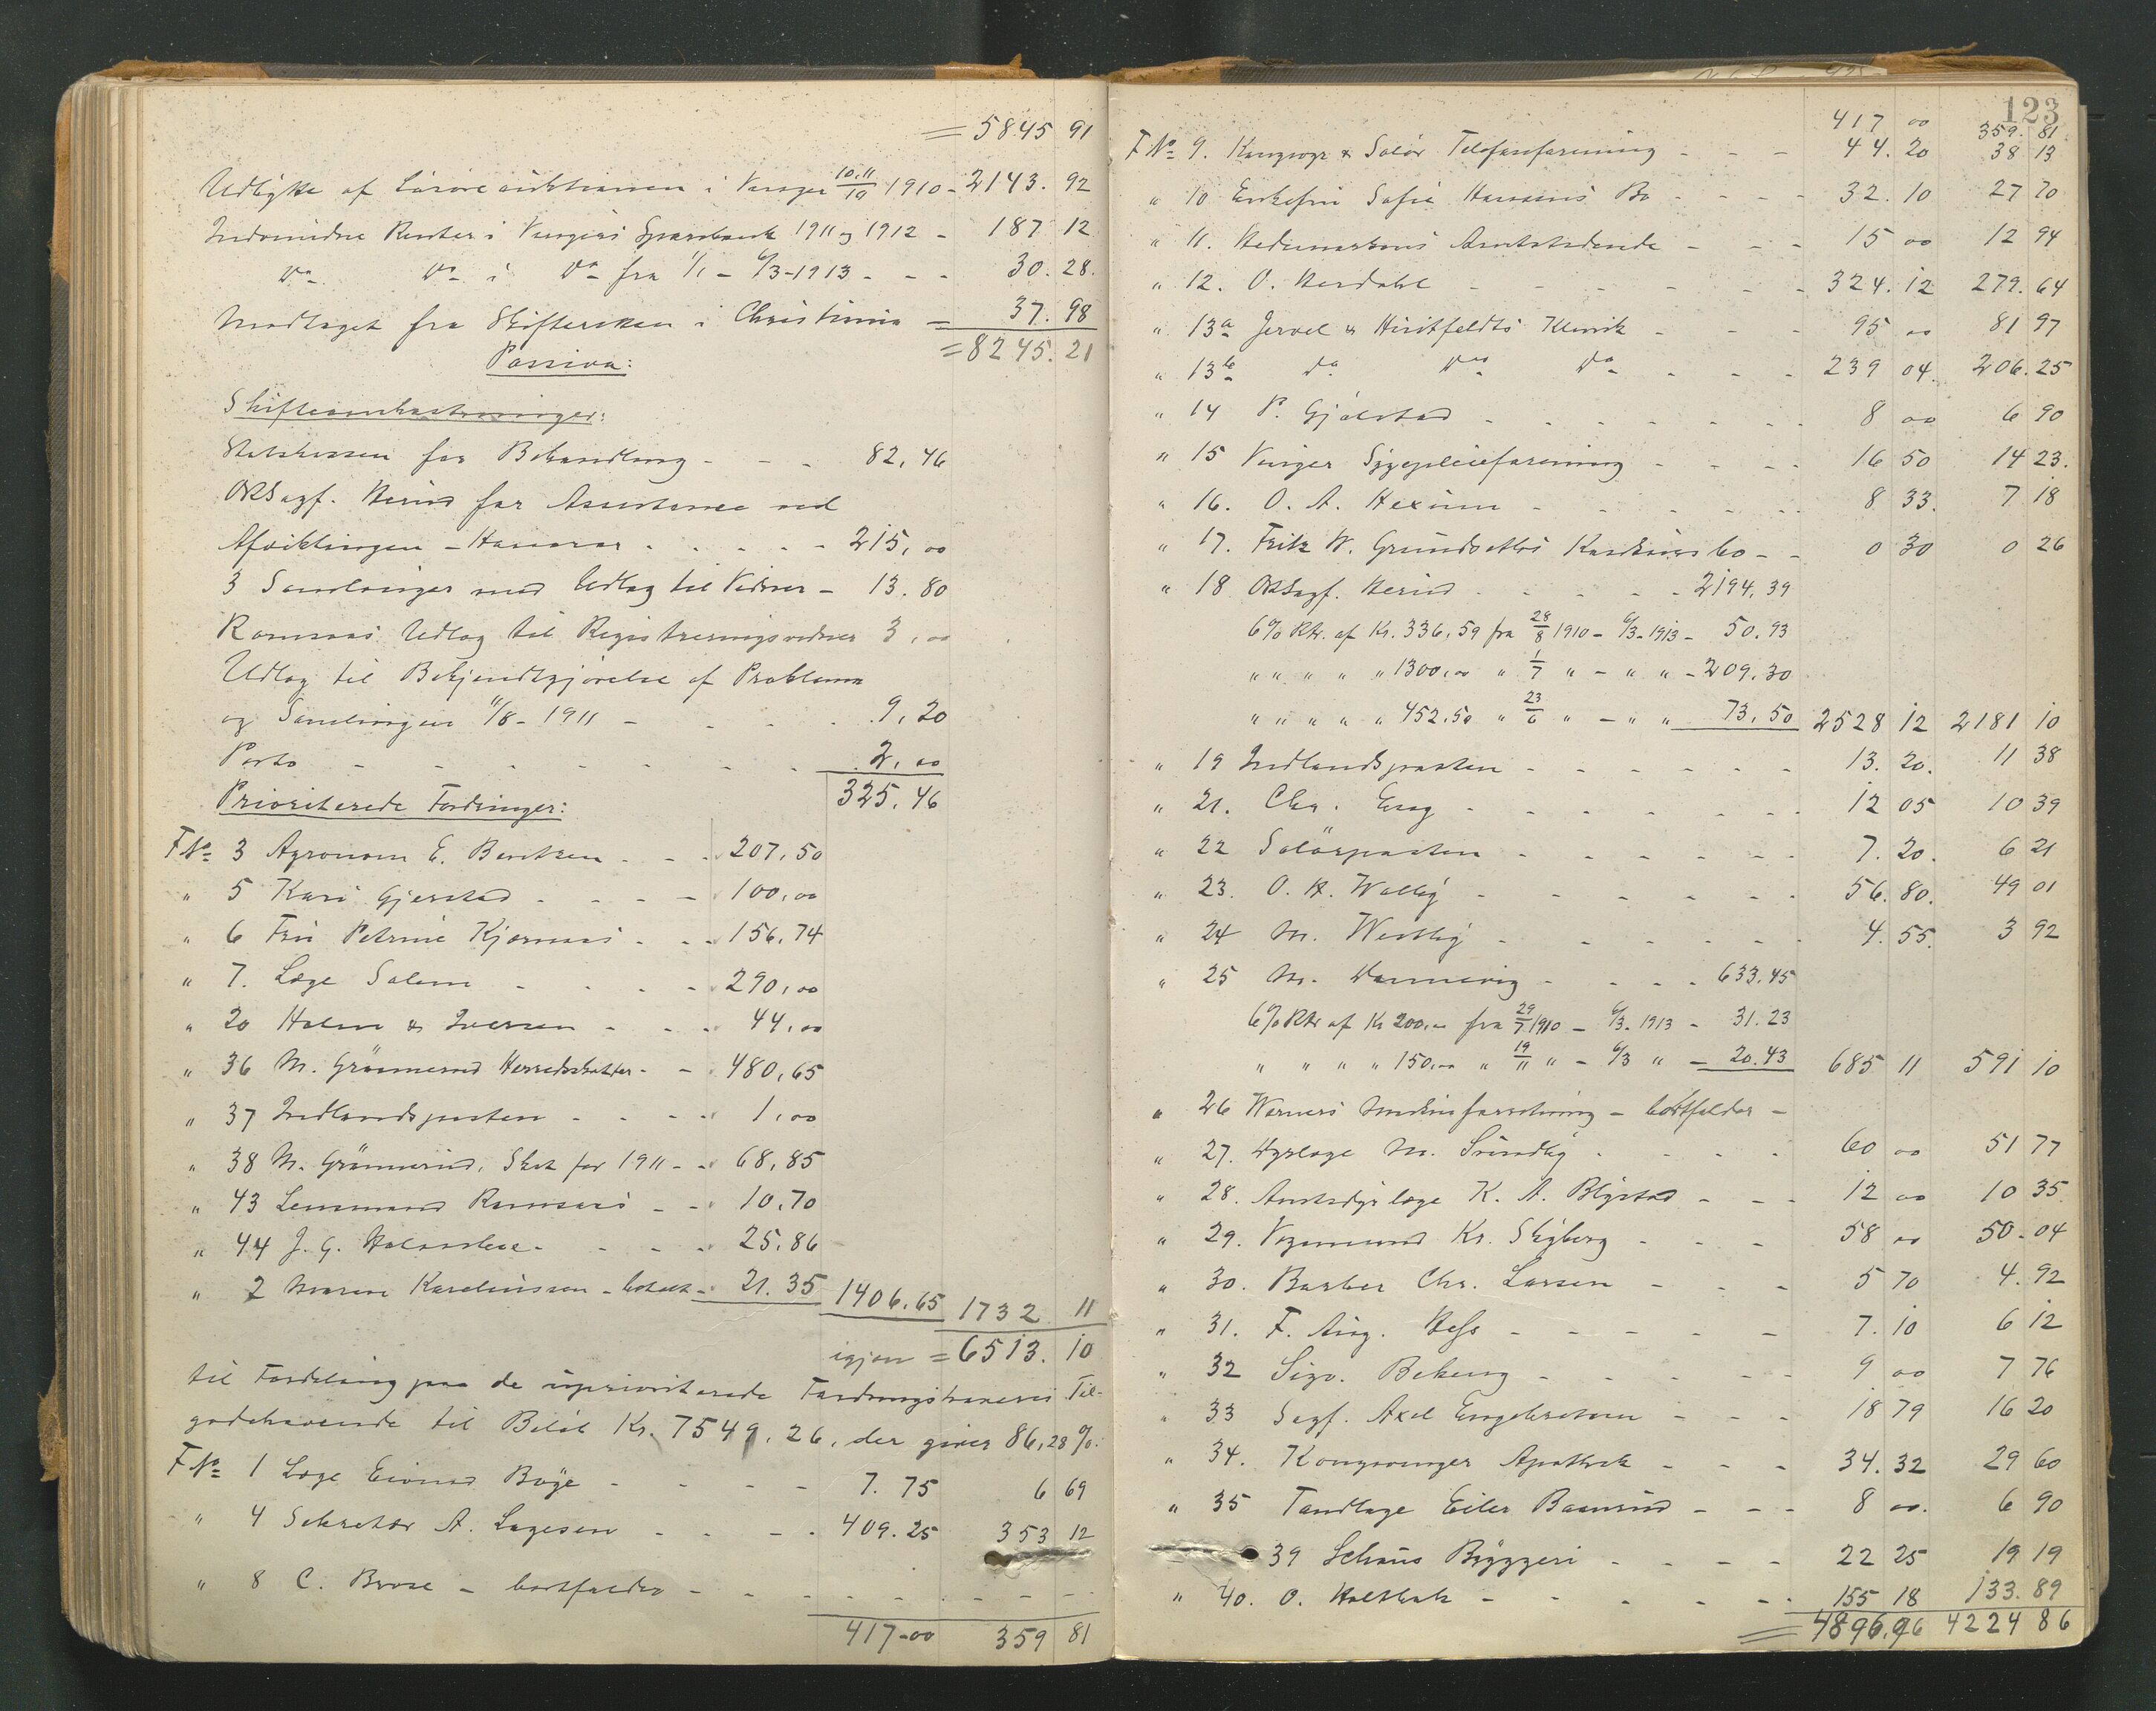 = 5845 91
Udbytte af Løsøreauktionen i Vinger 10.11/10 1910 - 2143. 92
Indvundne Renter i Vingers Sparebank 1911 og 1912 - 187 12
Do Do i Do fra 1/1 - 6/3 - 1913 - - - 30. 28.
Modtaget fra Skifteretten i Christiania = 37. 98
= 8245. 21
Passiva:
Skifteomkostninger:
Statskassen for Behandling - - - 82,46
ORSagf. Herud for Assistance ved
Afviklingen - Honorar - - - - - 215,00
3 Samlinger med Udlæg til Vidner - 13.80
Ramsaas Udlæg til Registreringsvidner 3,00
Udlæg til Bekjendtgjørelse af Proklama
og Samlingen 11/8 - 1911 - - - - 9,20
Porto - - - - - - - 2,00
325,46
Prioriterede Fordringer:
F No 3 Agronom E. Berntzen - - - 207,50
" 5 Kari Gjerstad - - - - 100,00
" 6 Fru Petrine Kjørnaas - - - 156,74
" 7. Læge Salem - - - - 290,00
" 20 Holm & Iversen - - - 44,00
" 36 M. Grønnerud Herredskatter - - 480,65
" 37 Indlandsposten - - - - 1,00
" 38 M. Grønnerud, Skat for 1911 - - 68,85
" 43 Lensmand Ramsaas - - 10,70
" 44 J. G. - - - - 25,86
" 2 Maren Karelinssen - betalt - 21.35 1406,65 1732 11
igjen = 6513. 10
til Fordeling paa de uprioriterede Fordringshaveres Til-
godehavende til Beløb Kr. 7549,26, der giver 86,28 %.
F No 1 Læge Eivind Bøye - - - - 7. 75 6 69
" 4 Sekretær A. Lagesen - - - - 409. 25 353 12
" 8 C. Brose - bortfalder - - - - - - - -
417-00 359 81
123
417 00 359. 81
F No 9. Kongsvgr & Solør Telefonforening - - - 44. 20 38 13
" 10 Enkefru Sofie Hansens Bo - - - - 32. 10 27 70
" 11. Hedemarkens Amtstidende - - - 15 00 12 94
" 12. O. Herdahl - - - - - - 324. 12 279. 64
" 13a Jervel & Hvitfeldts Klinik - - - 95 00 81 97
" 13b Do Do Do - - - 239 04. 206. 25
" 14 P. Gjølstad - - - - - - - 8 00 6 90
" 15 Vinger Sygepleieforening - - - - 16 50 14 23.
" 16. O. A. Hexum - - - - - - 8 33. 7 18
" 17. Fritz W. Grundsethts Konkursbo - - 0 30 0 26
" 18 ORSagf. Herud - - - - - 2194,39
6% Rtr. af Kr. 336,59 fra 28/8 1910 - 6/3 - 1913 - 50.93
" " " " " 1300,00 " 1/7 " - " " - 209,30
" " " " " 452,50 " 23/6 " - " " 73,50 2528 12 2181 10
" 19 Indlandsposten - - - - - - 13. 20. 11 38
" 21. Chr. Krog - - - - - - - 12 05 10 39
" 22 Solørposten - - - - - - 7. 20. 6 21
" 23. O. H. Walby - - - - - - 56. 80. 49 01
" 24 M. Westby - - - - - - - 4. 55. 3 92
" 25 M. Hannevig - - - - 633.45
6% Rtr af Kr 200,00 fra 29/7 1910 - 6/3. 1913 - 31.23
" " " " 150,00 " 19/11 " - 6/3 " - 20.43 685 11 591 10
" 26 Werners Musikforretning - bortfalder -
" 27. Dyrlæge M. Sundby - - - - 60 00 51 77
" 28. Amtsdyrlæge K. A. Blystad - - - 12 00 10 35.
" 29. Vognmand Kr. Skyberg - - - 58 00 50. 04
" 30. Barber Chr. Larsen - - - 5 70 4. 92
" 31. F. Aug. Hess - - - - - 7. 10 6 12
" 32 Sigv. Bekeng - - - - - 9 00 7 76
" 33 Sagf. Axel Engebretsen - - - 18 79 16 20
" 34. Kongsvinger Apothek - - - 34. 32 29 60
" 35 Tandlæge Eiler Baanrud - - - 8 00. 6 90
39 Schous Bryggeri - - - - 22 25 19 19
" 40. O. Holtbak - - - - - - 155 18 133. 89
= 4896,96 4224 86